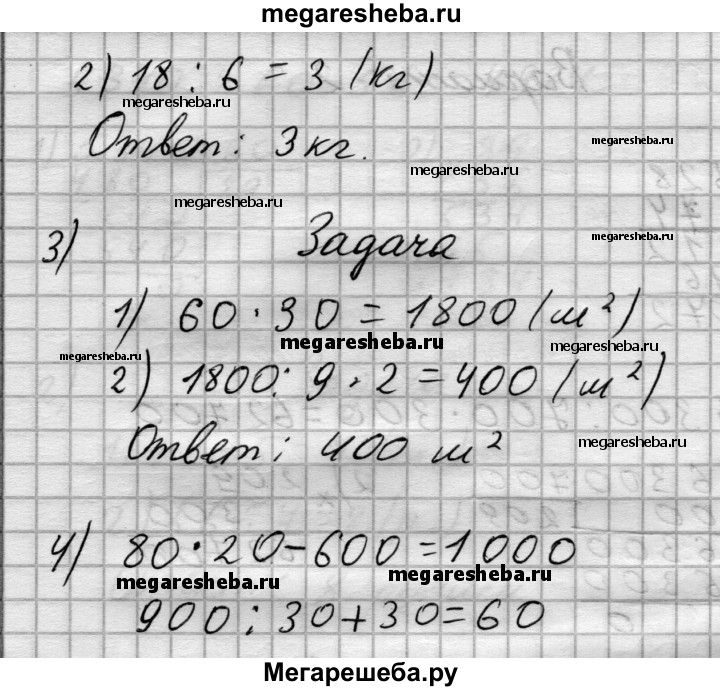 megaresheba.ru
2) 18 : 6 = 3 (кг)
megaresheba.ru
Ответ: 3 кг.
megaresheba.ru
megaresheba.ru
3) Задача
megaresheba.ru
1) 60 · 30 = 1800 (м²)
megaresheba.ru
megaresheba.ru
2) 1800 : 9 · 2 = 400 (м²)
Ответ: 400 м²
megaresheba.ru
4) 80 · 20 - 600 = 1000
megaresheba.ru
megaresheba.ru
900 : 30 + 30 = 60
Мегарешеба.ру